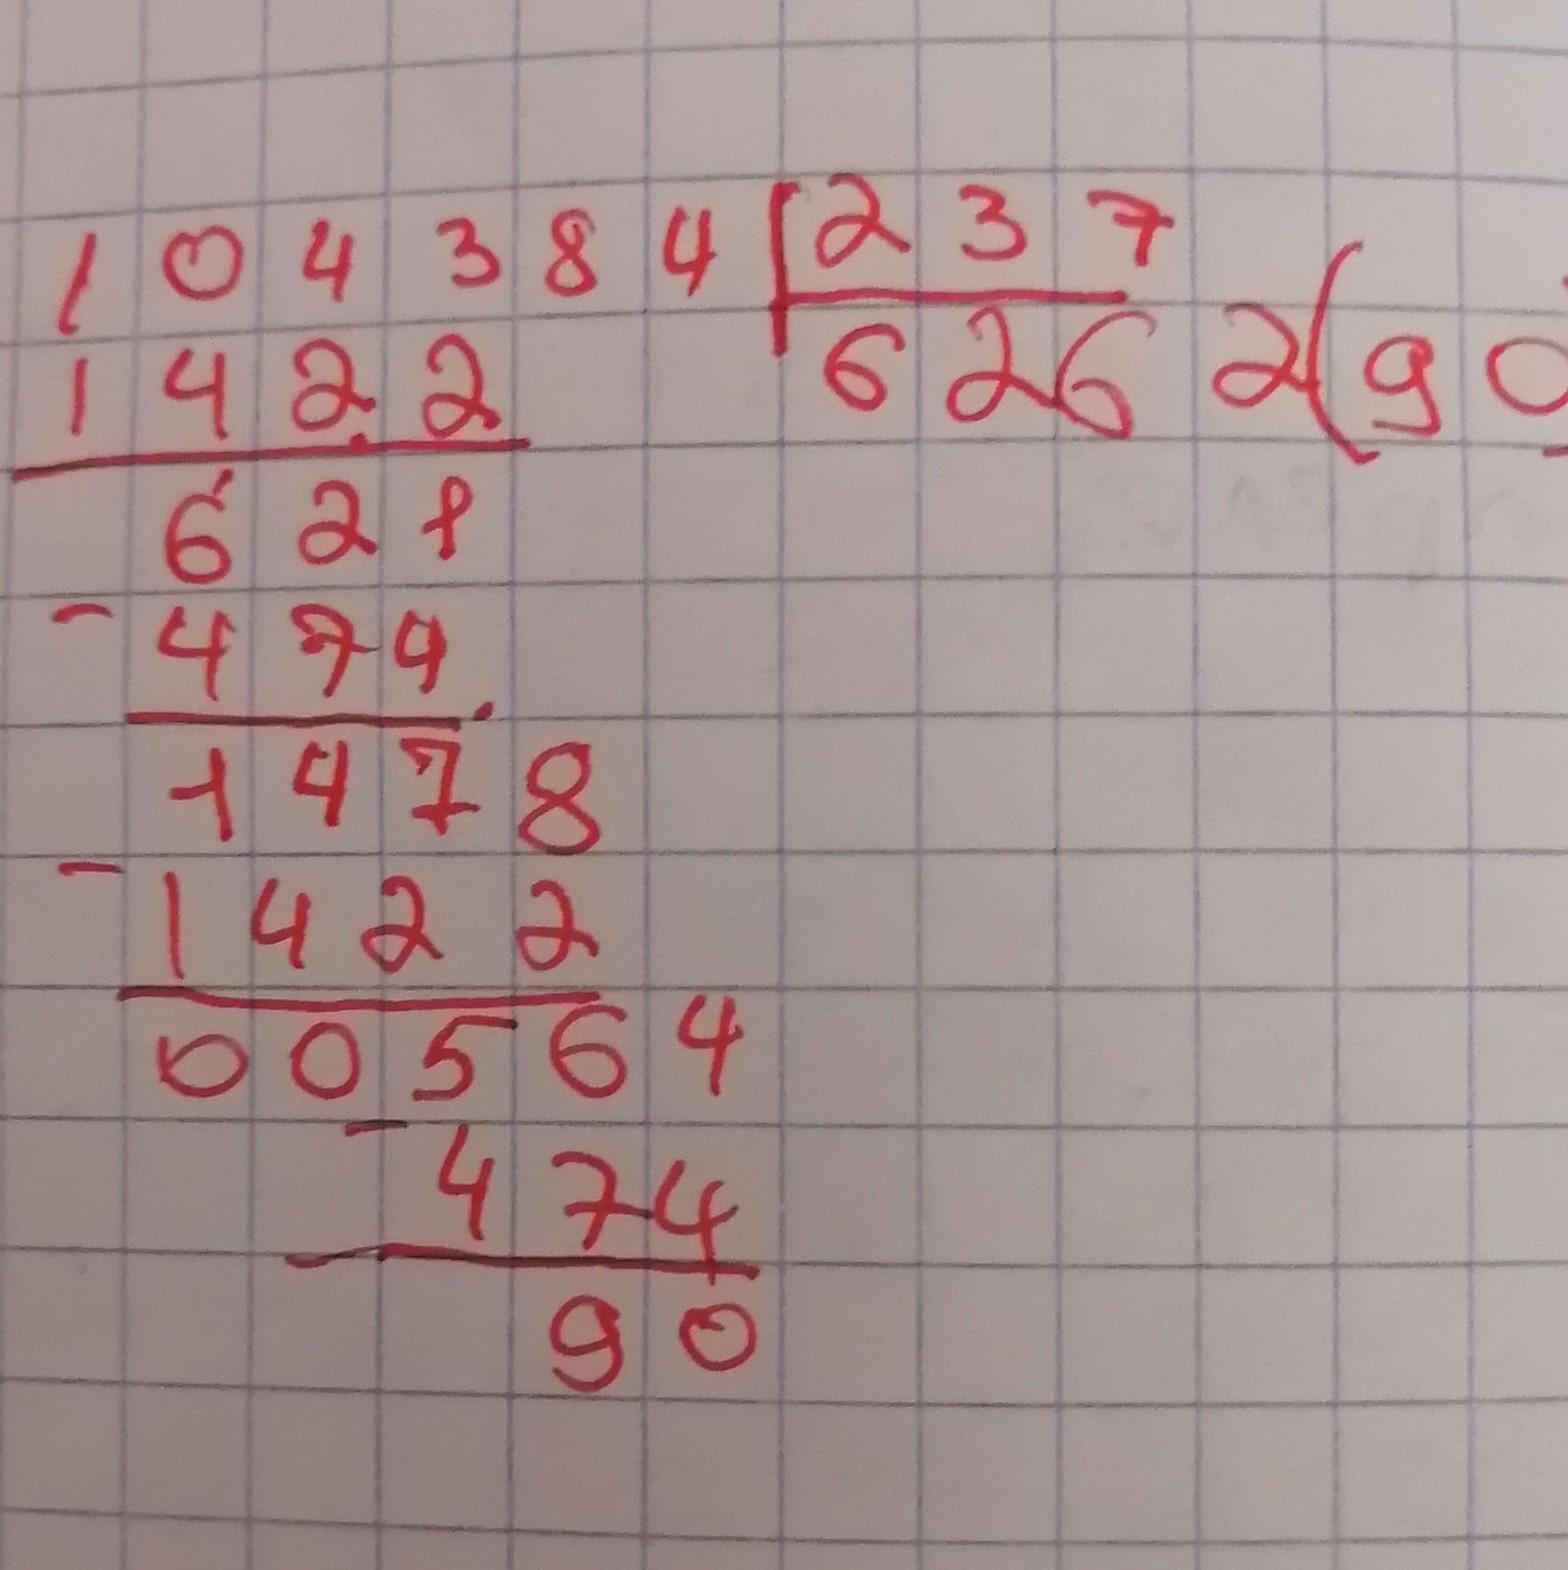 104384 237
1422 6262(90
621
- 474
1478
- 1422
00564
- 474
90